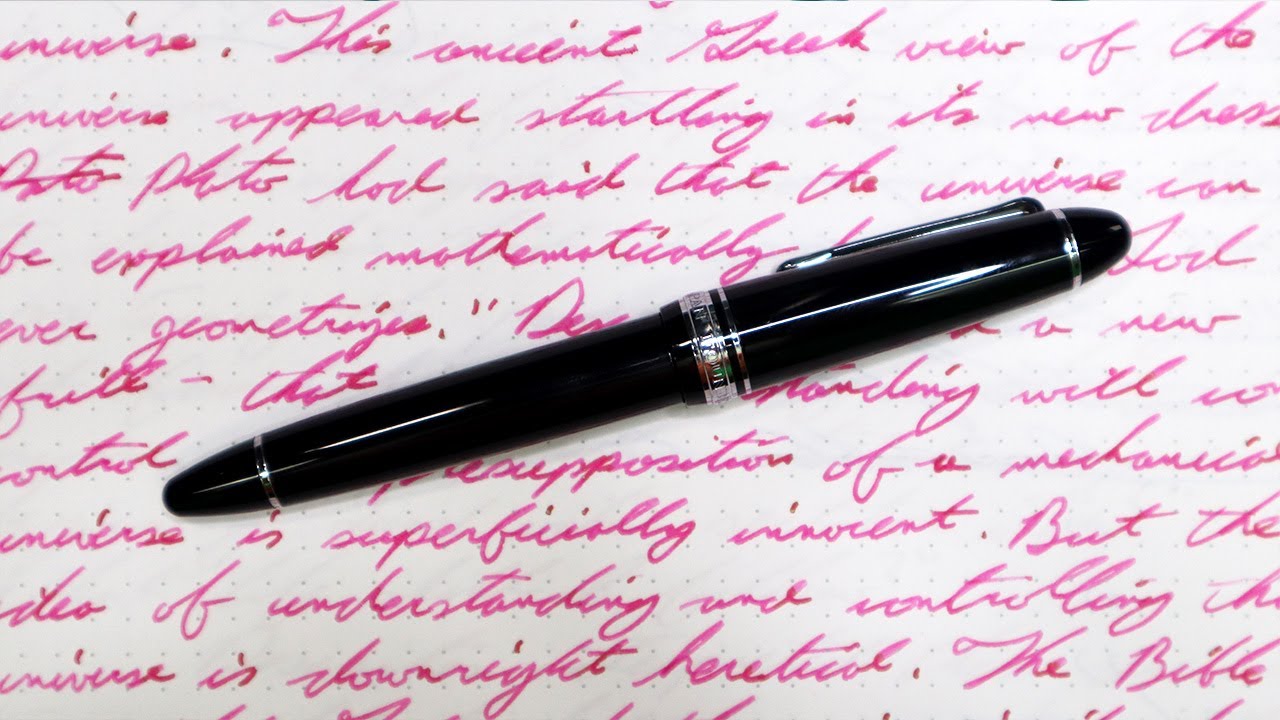 universe. This ancient Greek view of the
universe appeared startling in its new dress
Plato Plato had said that the universe can
be explained mathematically God
ever geometrizes." Des a new
fruit - that standing will con
control presupposition of a mechanical
universe is superficially innocent. But the
idea of understanding and controlling the
universe is downright heretical. The Bible